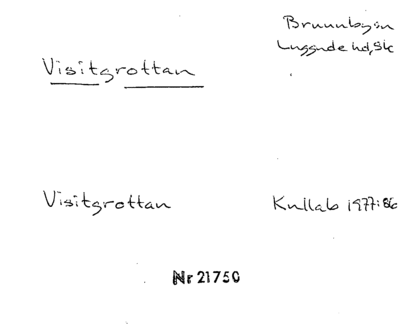 Brunnbyn
Luggude hd, Sk
Visitgrottan
Visitgrottan
Kullab 1977:86
Nr 21750